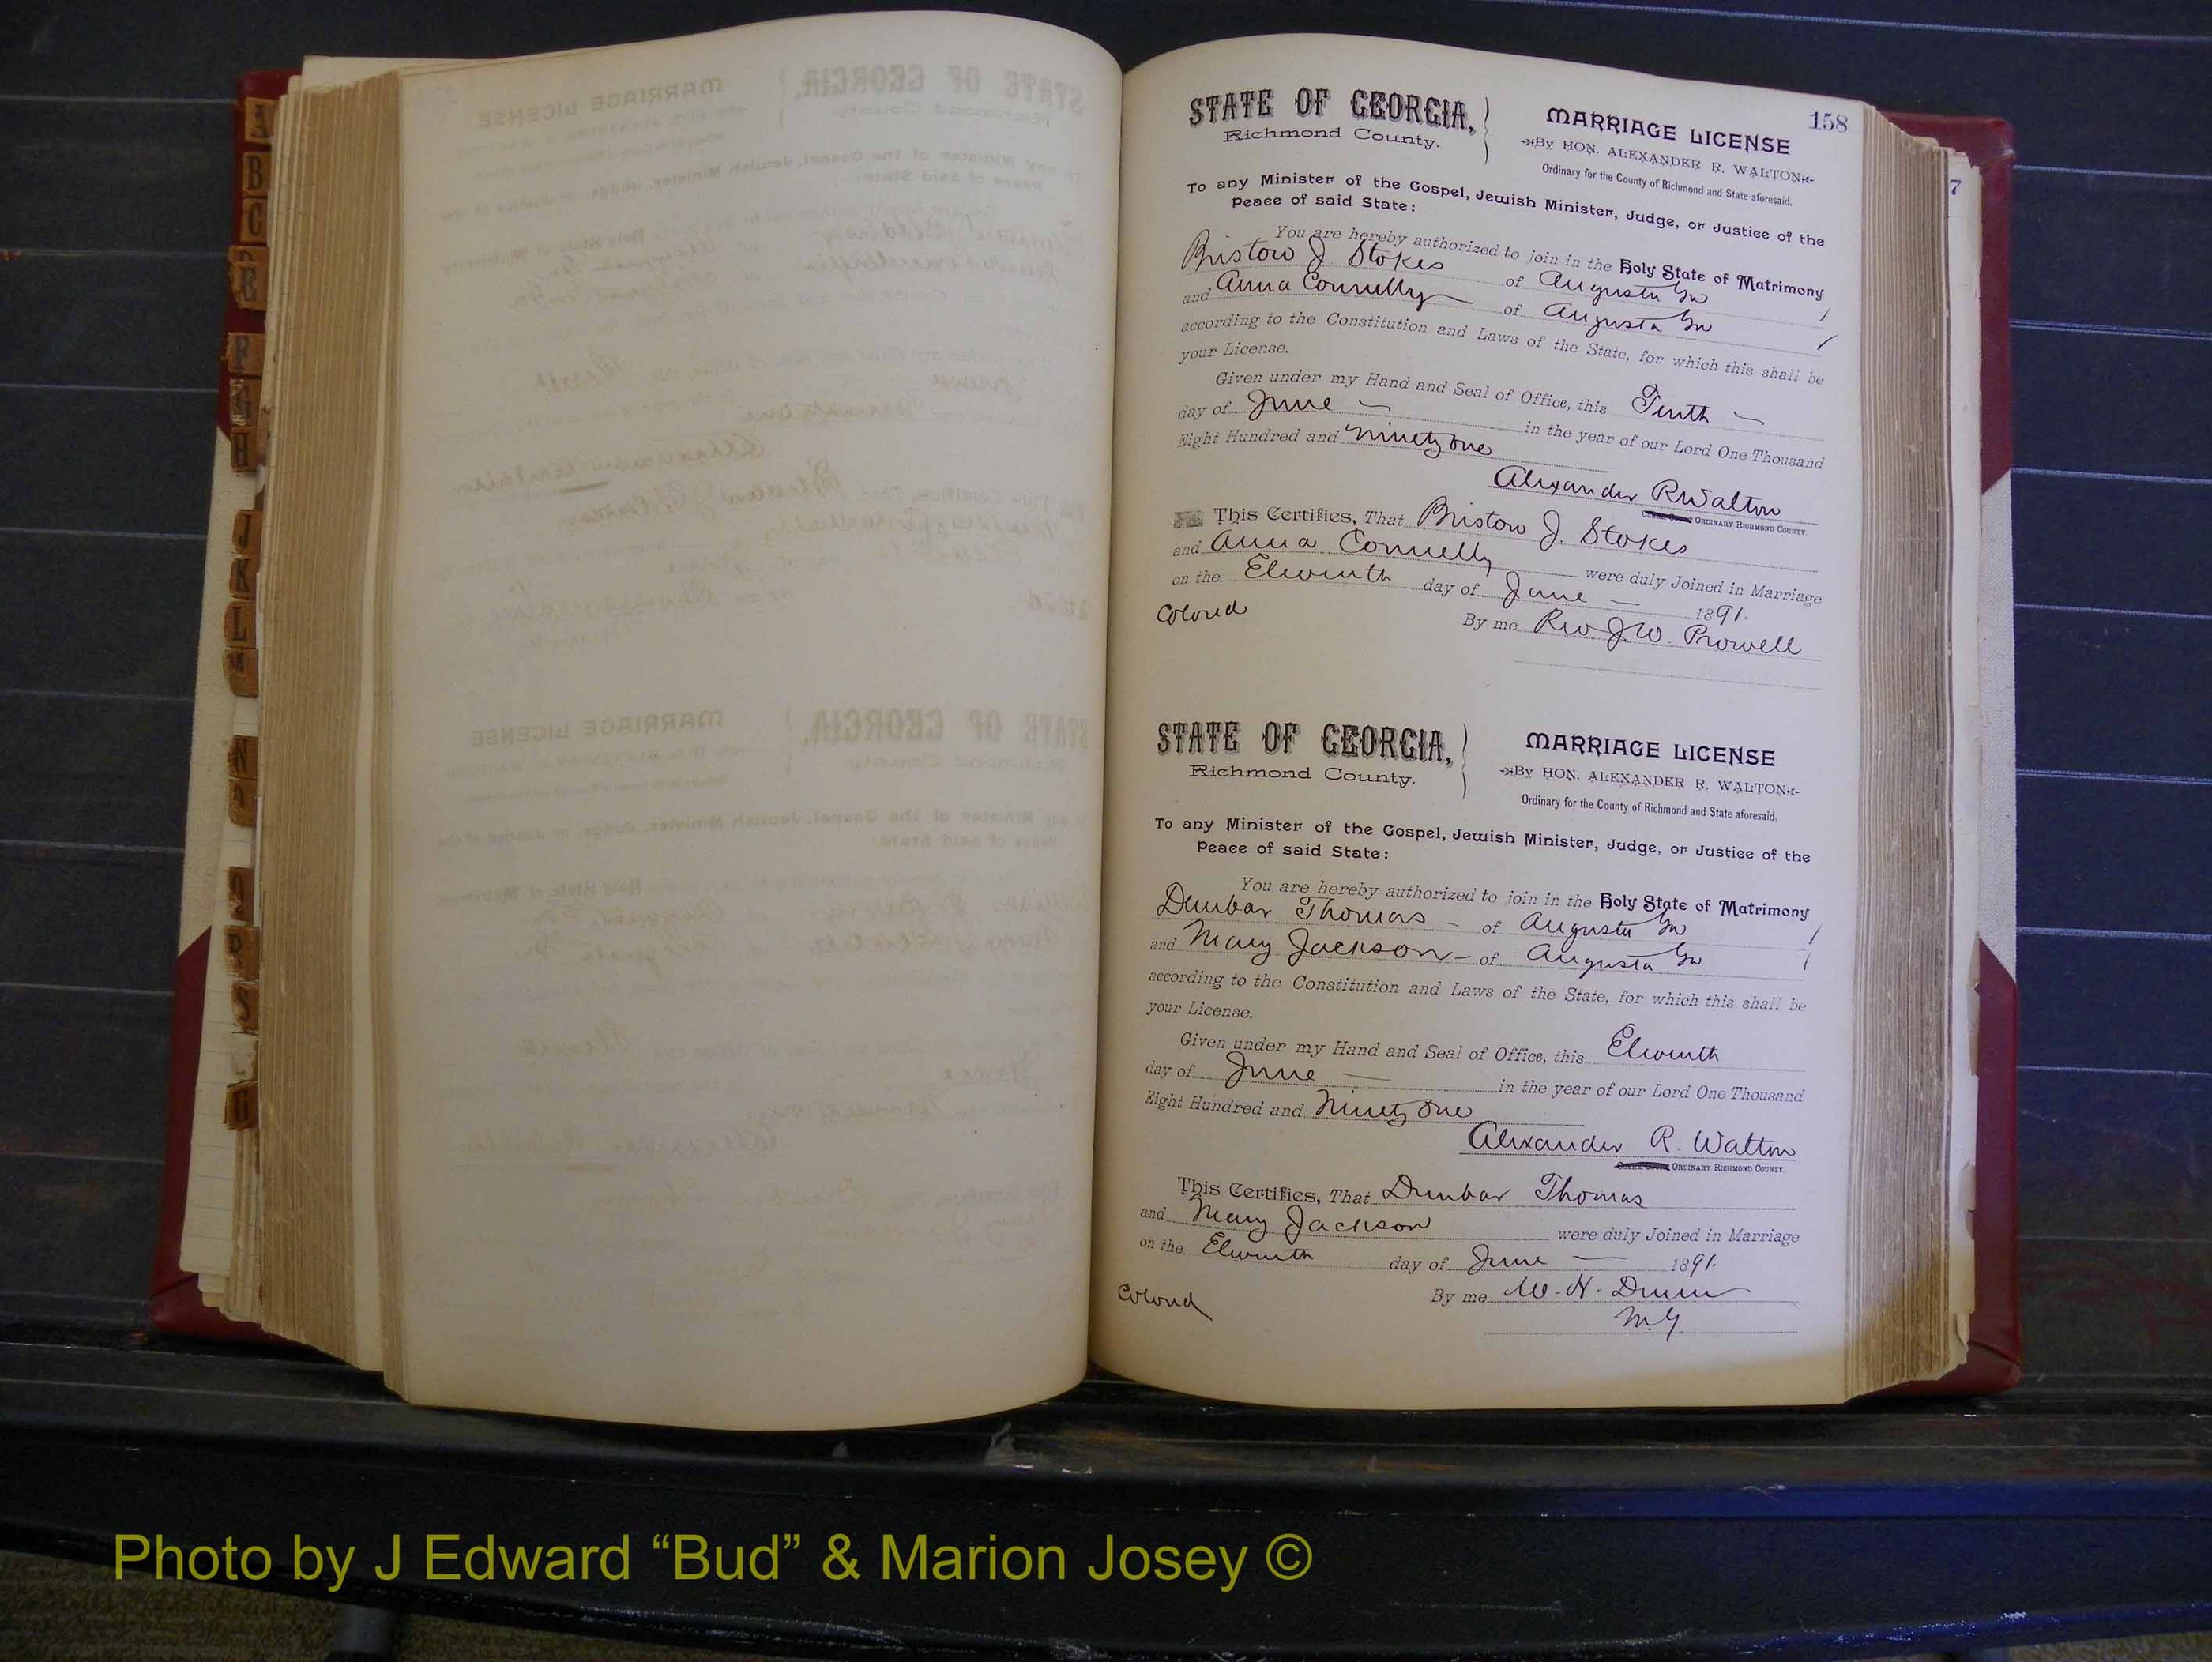 A
B
C
E
F
H
J
K
L
M
N
O
P
S
158
7
STATE OF GEORGIA,
Richmond County.
MARRIAGE LICENSE
By HON. ALEXANDER R. WALTON
Ordinary for the County of Richmond and State aforesaid.
To any Minister of the Gospel, Jewish Minister, Judge, or Justice of the
Peace of said State:
You are hereby authorized to join in the Holy State of Matrimony
Bristow J. Stokes of Augusta Ga
and Anna Connelly of Augusta Ga
according to the Constitution and Laws of the State, for which this shall be
your License.
Given under my Hand and Seal of Office, this Tenth
day of June in the year of our Lord One Thousand
Eight Hundred and Ninety one
Alexander R Walton
ORDINARY RICHMOND COUNTY
This Certifies, That Bristow J. Stokes
and Anna Connelly were duly Joined in Marriage
on the Eleventh day of June 1891.
Colored By me Rev J. W. Prowell
STATE OF GEORGIA,
Richmond County.
MARRIAGE LICENSE
By HON. ALEXANDER R. WALTON
Ordinary for the County of Richmond and State aforesaid.
To any Minister of the Gospel, Jewish Minister, Judge, or Justice of the
Peace of said State:
You are hereby authorized to join in the Holy State of Matrimony
Dunbar Thomas of Augusta Ga
and Mary Jackson of Augusta Ga
according to the Constitution and Laws of the State, for which this shall be
your License.
Given under my Hand and Seal of Office, this Eleventh
day of June in the year of our Lord One Thousand
Eight Hundred and Ninety One
Alexander R. Walton
ORDINARY RICHMOND COUNTY.
This Certifies, That Dunbar Thomas
and Mary Jackson were duly Joined in Marriage
on the Eleventh day of June 1891.
Colored By me W. H.
M.G.
Photo by J Edward “Bud” & Marion Josey ©